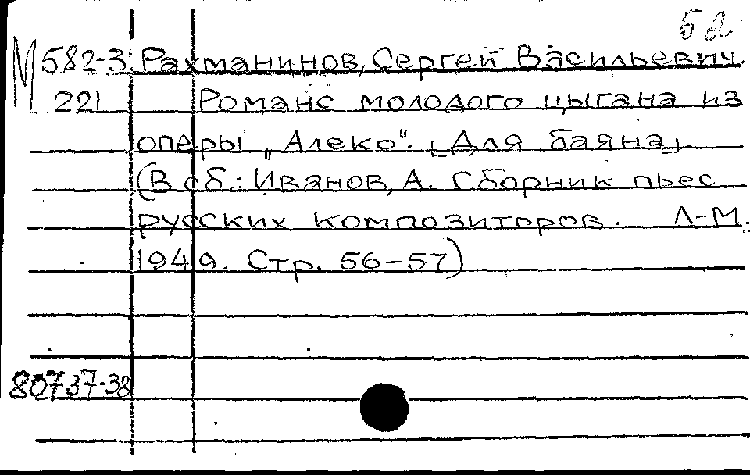 52
М 582-3 Рахманинов, Сергей Васильевич
221 Романс молодого цыгана из
оперы „Алеко". [Для баяна]
(В сб.: Иванов, А. Сборник пьес
русских композиторов. Л-М,
1949. Стр. 56-57)
80737-38